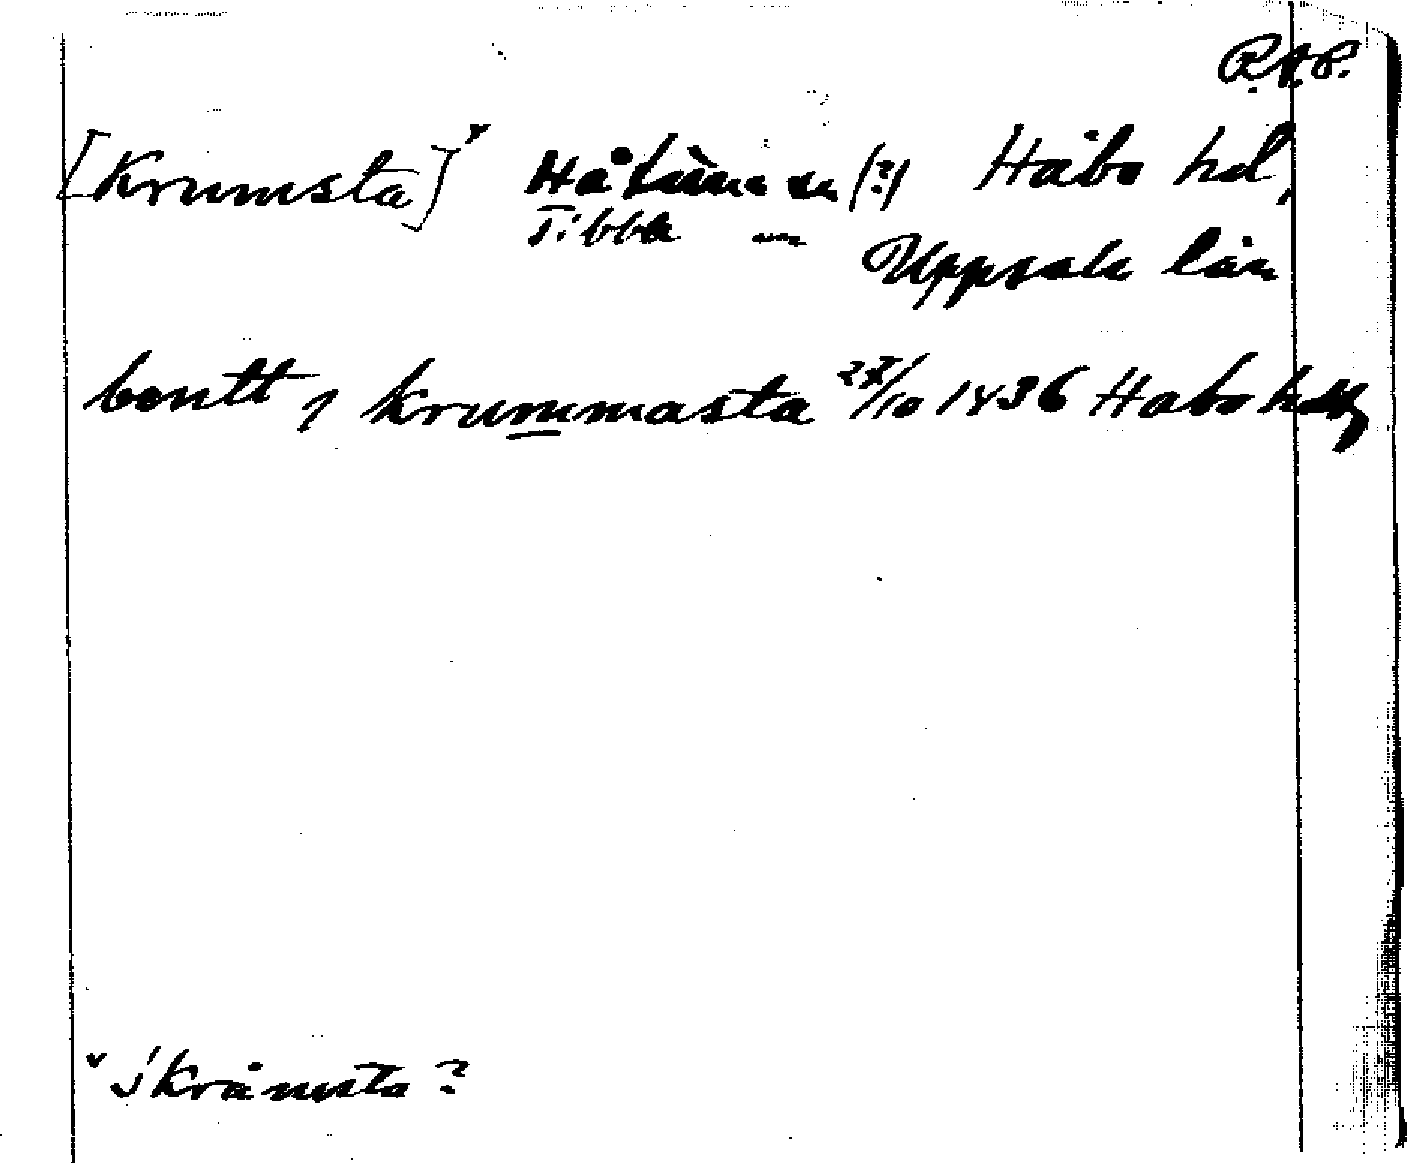 R.A.P.
[Krumsta]ˇ Håtuna sn (?) Håbo hd,
Tibble —
Uppsala län
bentt, krummasta 27/10 1436 Habo hdg
ˇ jkrånsta?